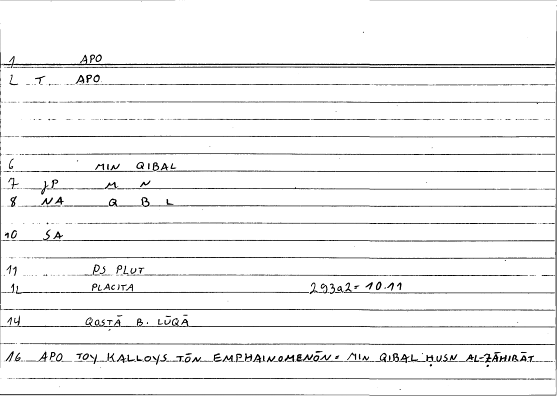 1 APO
2 T APO
6 MIN QIBAL
7 JP M N
8 NA Q B L
10 SA
11 PS PLUT
12 PLACITA 293a2 = 10.11
14 QOSṬĀ B. LŪQĀ
16 APO TOY KALLOYS TŌN EMPHAINOMENŌN = MIN QIBAL ḤUSN AL-ẒĀHIRĀT